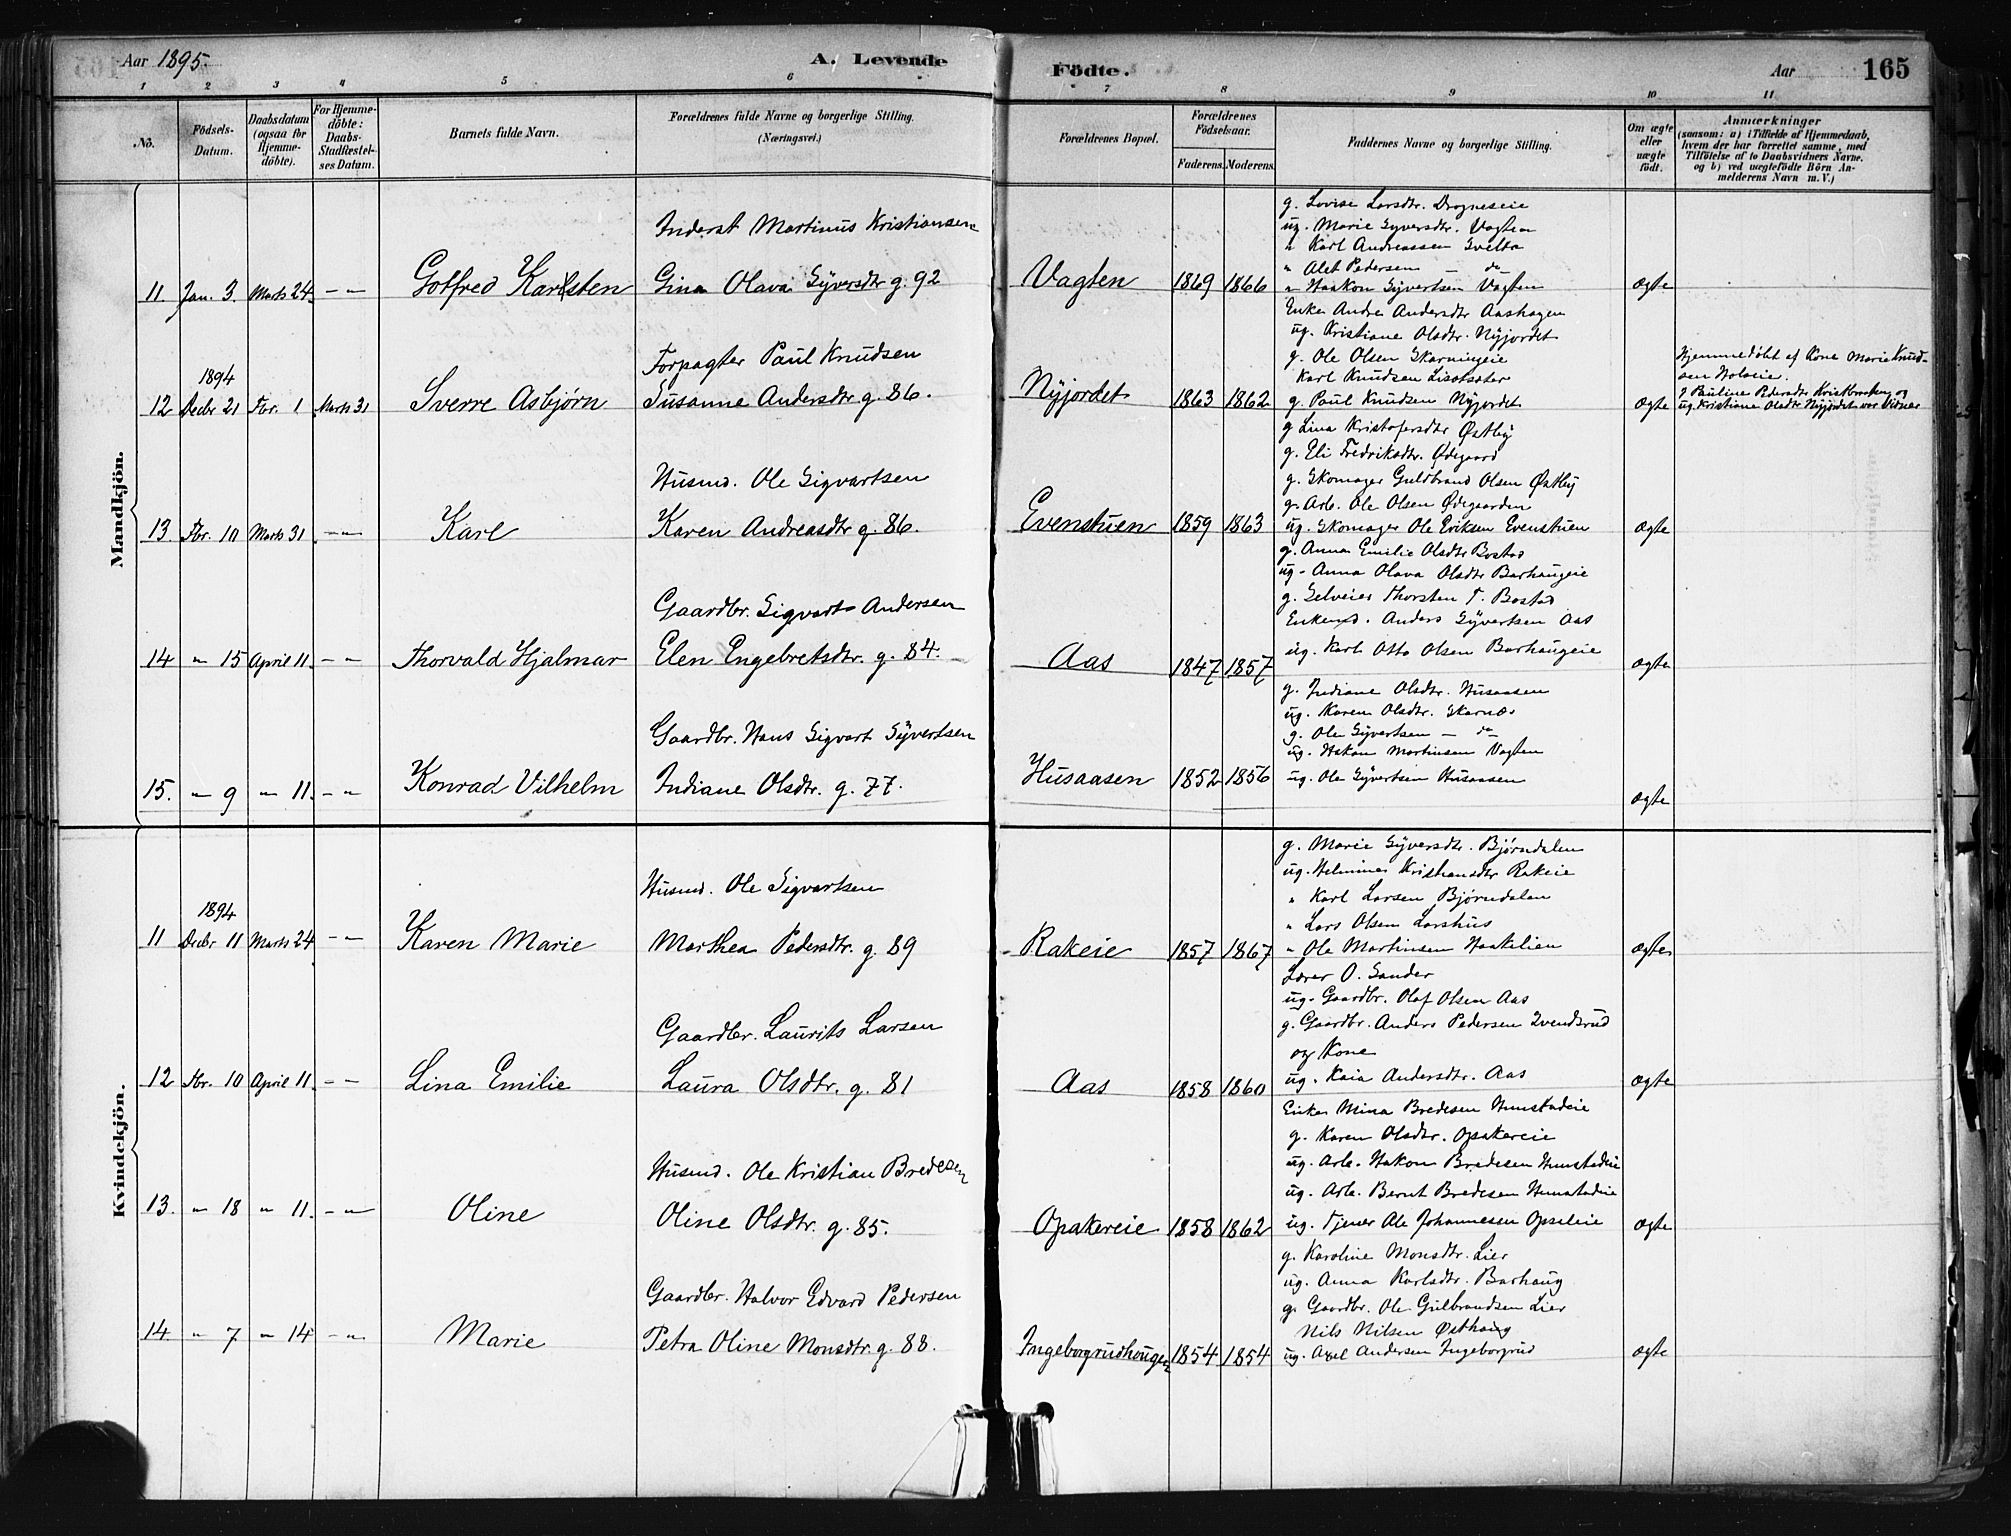 Aar 1895. A. Levende Födte. Aar 165
1 2 3 4 5 6 7 8 9 10 11
No.
Födsels-Datum.
Daabsdatum (ogsaa for Hjemme-döbte).
For Hjemme-döbte: Daabs-Stadfestel-ses Datum.
Barnets fulde Navn.
Forældrenes fulde Navne og borgerlige Stilling.
(Næringsvei.)
Forældrenes Bopæl.
Forældrenes Födselsaar.
Faderens. Moderens.
Faddernes Navne og borgerlige Stilling.
Om ægte eller uægte födt.
Anmærkninger
(saasom: a) i Tilfælde af Hjemmedaab,
hvem der har forrettet samme, med
Tilföielse af to Daabsvidners Navne.
og b) ved uægtefödte Börn An-
melderens Navn m. V.)
Mandkjön.
g. Lovise Larsdtr. Drogneseie
Inderst Martinus Kristiansen
ug. Marie Syversdtr. Vagten
" Karl Andreassen
" Alet Pedersen — do
11 Jan. 3 Marts 24. -"- Gotfred Karlsten Gina Olava Syversdtr g. 92 Vagten 1869 1866 " Haakon Syvertsen Vagten ægte
Enke Andrea Andersdtr Aashagen
ug. Kristiane Olsdtr. Nyjordet
Forpagter Paul Knudsen
g. Ole Olsen Skarningeie
Hjemmedöbt af Kone Marie Knud-
sen Holseie.
Karl Knudsen
1894
12 Decbr 21 Fbr. 1 Marts 31 Sverre Asbjørn Susanne Andersdtr g. 86. Nyjordet 1863 1862 g. Paul Knudsen Nyjordet ægte
g Pauline Pedersdtr og
ug. Kristiane Olsdtr Nyjordet var Vidner
g Lina Kristofersdtr Østby
g. Eli Fredriksdtr. Ødegaard
Husmd. Ole Sigvartsen
g. Skomager Guldbrand Olsen Østby
g. Arb. Ole Olsen Ødegaarden
13. Fbr. 10 Marts 31 -"- Karl Karen Andreasdtr g. 86. Evenstuen 1859 1863 ug. Skomager Ole Eriksen Evenstuen ægte
g. Anna Emilie Olsdtr Bostad
ug. Anna Olava Olsdtr Barhaugeie
Gaardbr. Sigvart Andersen
g. Selveier Thorsten T. Bostad
Enkemd. Anders Syvertsen Aas
14 " 15 April 11. -"- Thorvald Hjalmar Elen Engebretsdtr. g. 84. Aas 1847 1857 ug. Karl Otto Olsen Barhaugeie ægte
g. Indiane Olsdtr. Husaasen
ug. Karen Olsdtr. Skarnæs
Gaardbr. Hans Sigvart Syvertsen
g. Ole Syvertsen — do
ug. Hakon Martinsen Vagten
15. " 9 " 11. -"- Konrad Vilhelm Indiane Olsdtr. g. 77. Husaasen 1852 1856 ug. Ole Syvertsen Husaasen ægte
Kvindekjön.
g. Marie Syversdtr. Bjørndalen
Husmd. Ole Sigvartsen
ug. Helmine Kristiansdtr Rakeie
" Karl Larsen Bjørndalen
" Lars Olsen Larshus
1894
11 Decbr 11 Marts 24 -"- Karen Marie Marthea Pedersdtr. g. 89 Rakeie 1857 1867 " Ole Martinsen Haakelien ægte
Lærer O. Sander
ug. Gaardbr. Olaf Olsen Aas
Gaardbr. Laurits Larsen
g. Gaardbr. Anders Pedersen
og Kone
12 Fbr. 10 April 11. -"- Lina Emilie Laura Olsdtr. g. 81 Aas 1858 1860 ug. Kaia Andersdtr. Aas ægte
Enke Mina Bredesen Hunstadeie
g. Karen Olsdtr. Opakereie
Husmd. Ole Kristian Bredesen
ug. Arb. Hakon Bredesen Hunstadeie
ug. Arb. Bernt Bredesen Hunstadeie
13. " 18 " 11. -"- Oline Oline Olsdtr. g. 85. Opakereie 1858 1862 ug. Tjener Ole Johannesen ægte
g. Karoline Monsdtr. Lier
ug. Anna Karlsdtr. Barhaug
Gaardbr. Halvor Edvard Pedersen
g. Gaardbr. Ole Gulbrandsen Lier
Nils Nilsen Østhaug
14. " 7 " 14 -"- Marie Petra Oline Monsdtr. g. 88. Ingeborgrudhougen 1854 1854 ug. Axel Andersen Ingeborgrud ægte